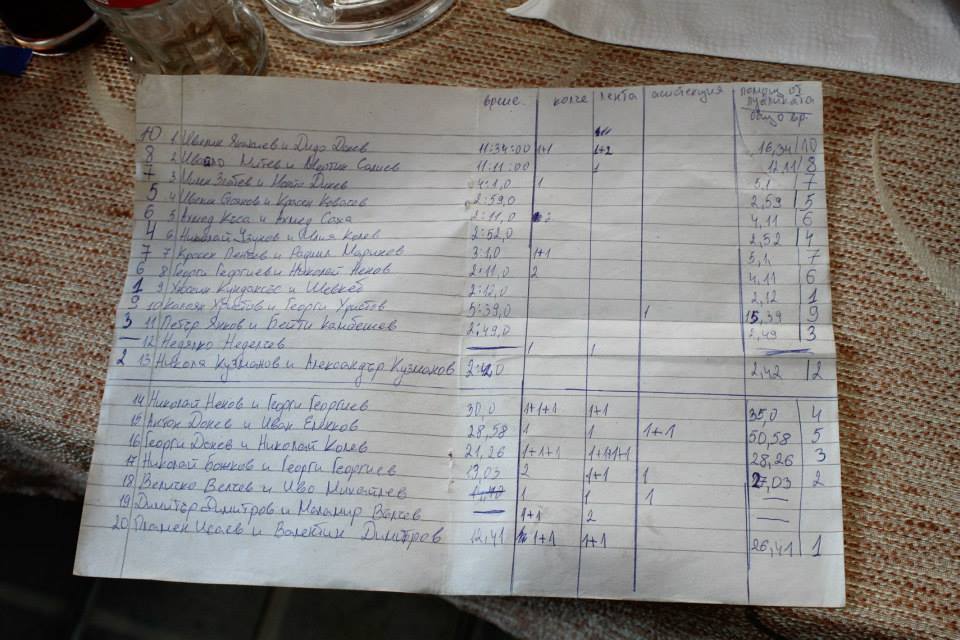 време. колче лента асистенция помощ от публиката общо вр.
10 1 Ивелин Яковлев и Дидо Донев 11:34:00 1+1 1+2 16,34 10
8 2 Ивайло Митев и Мартин Салиев 11:11:00 1 8
7 3 Илен Златев и Митко Динев 4:1,0 1 5,1 7
5 4 и Красен Ковачев 2:59,0 2,59 5
6 5 Ахмед Коса и Ахмед Саха 2:11,0 2 4,11 6
4 6 Николай Узунов и Илия Колев 2:52,0 2,52 4
7 7 Красен Пенчев и Радил Маринов 3:1,0 1+1 5,1 7
6 8 Георги Георгиев и Николай Ненов 2:11,0 2 4,11 6
1 9 и Шевкет 2:12,0 2,12 1
9 10 Калоян Христов и Георги Христов 5:39,0 1 15,39 9
3 11 Петър Янков и Бейти Камбешев 2:49,0 2,49 3
— 12 Недялко Неделчев — 1 1 —
2 13 Никола Кузманов и Александър Кузманов 2:42,0 2,42 2
14 Николай Ненов и Георги Георгиев 30,0 1+1+1 1+1 35,0 4
15 Антон Донев и Иван Енеков 28,58 1 1 1+1 50,58 5
16 Георги Донев и Николай Колев 21,26 1+1+1 1+1+1+1 28,26 3
17 Николай Божков и Георги Георгиев 13,03 2 1+1 1 27,03 2
18 Величко Велчев и Иво Михайлев 1 1 1 —
19 Димитър Димитров и Маламир Вълков — 1+1 2 —
20 Пламен Исаев и Валентин Димитров 12,41 1+1 1+1 26,41 1